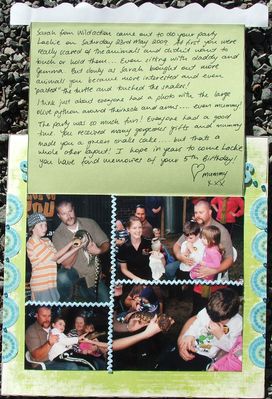 Sarah from Wildaction came out to do your party
Lachie on Saturday 23rd May 2009. At first you were
really scared of the animals and didnt want to
touch or hold them.... Even sitting with daddy and
Gemma. But slowly as Sarah bought out more
animals you became more interested and even
patted the turtle and touched the snakes!
I think just about everyone had a photo with the large
olive python around their neck and arms.... even mummy!
The party was so much fun! Everyone had a good
time. You received many gorgeous gifts and mummy
made you a green snake cake.... but thats a
whole other layout! I hope in years to come Lachie
you have fond memories of your 5th Birthday!
Mummy
xxx